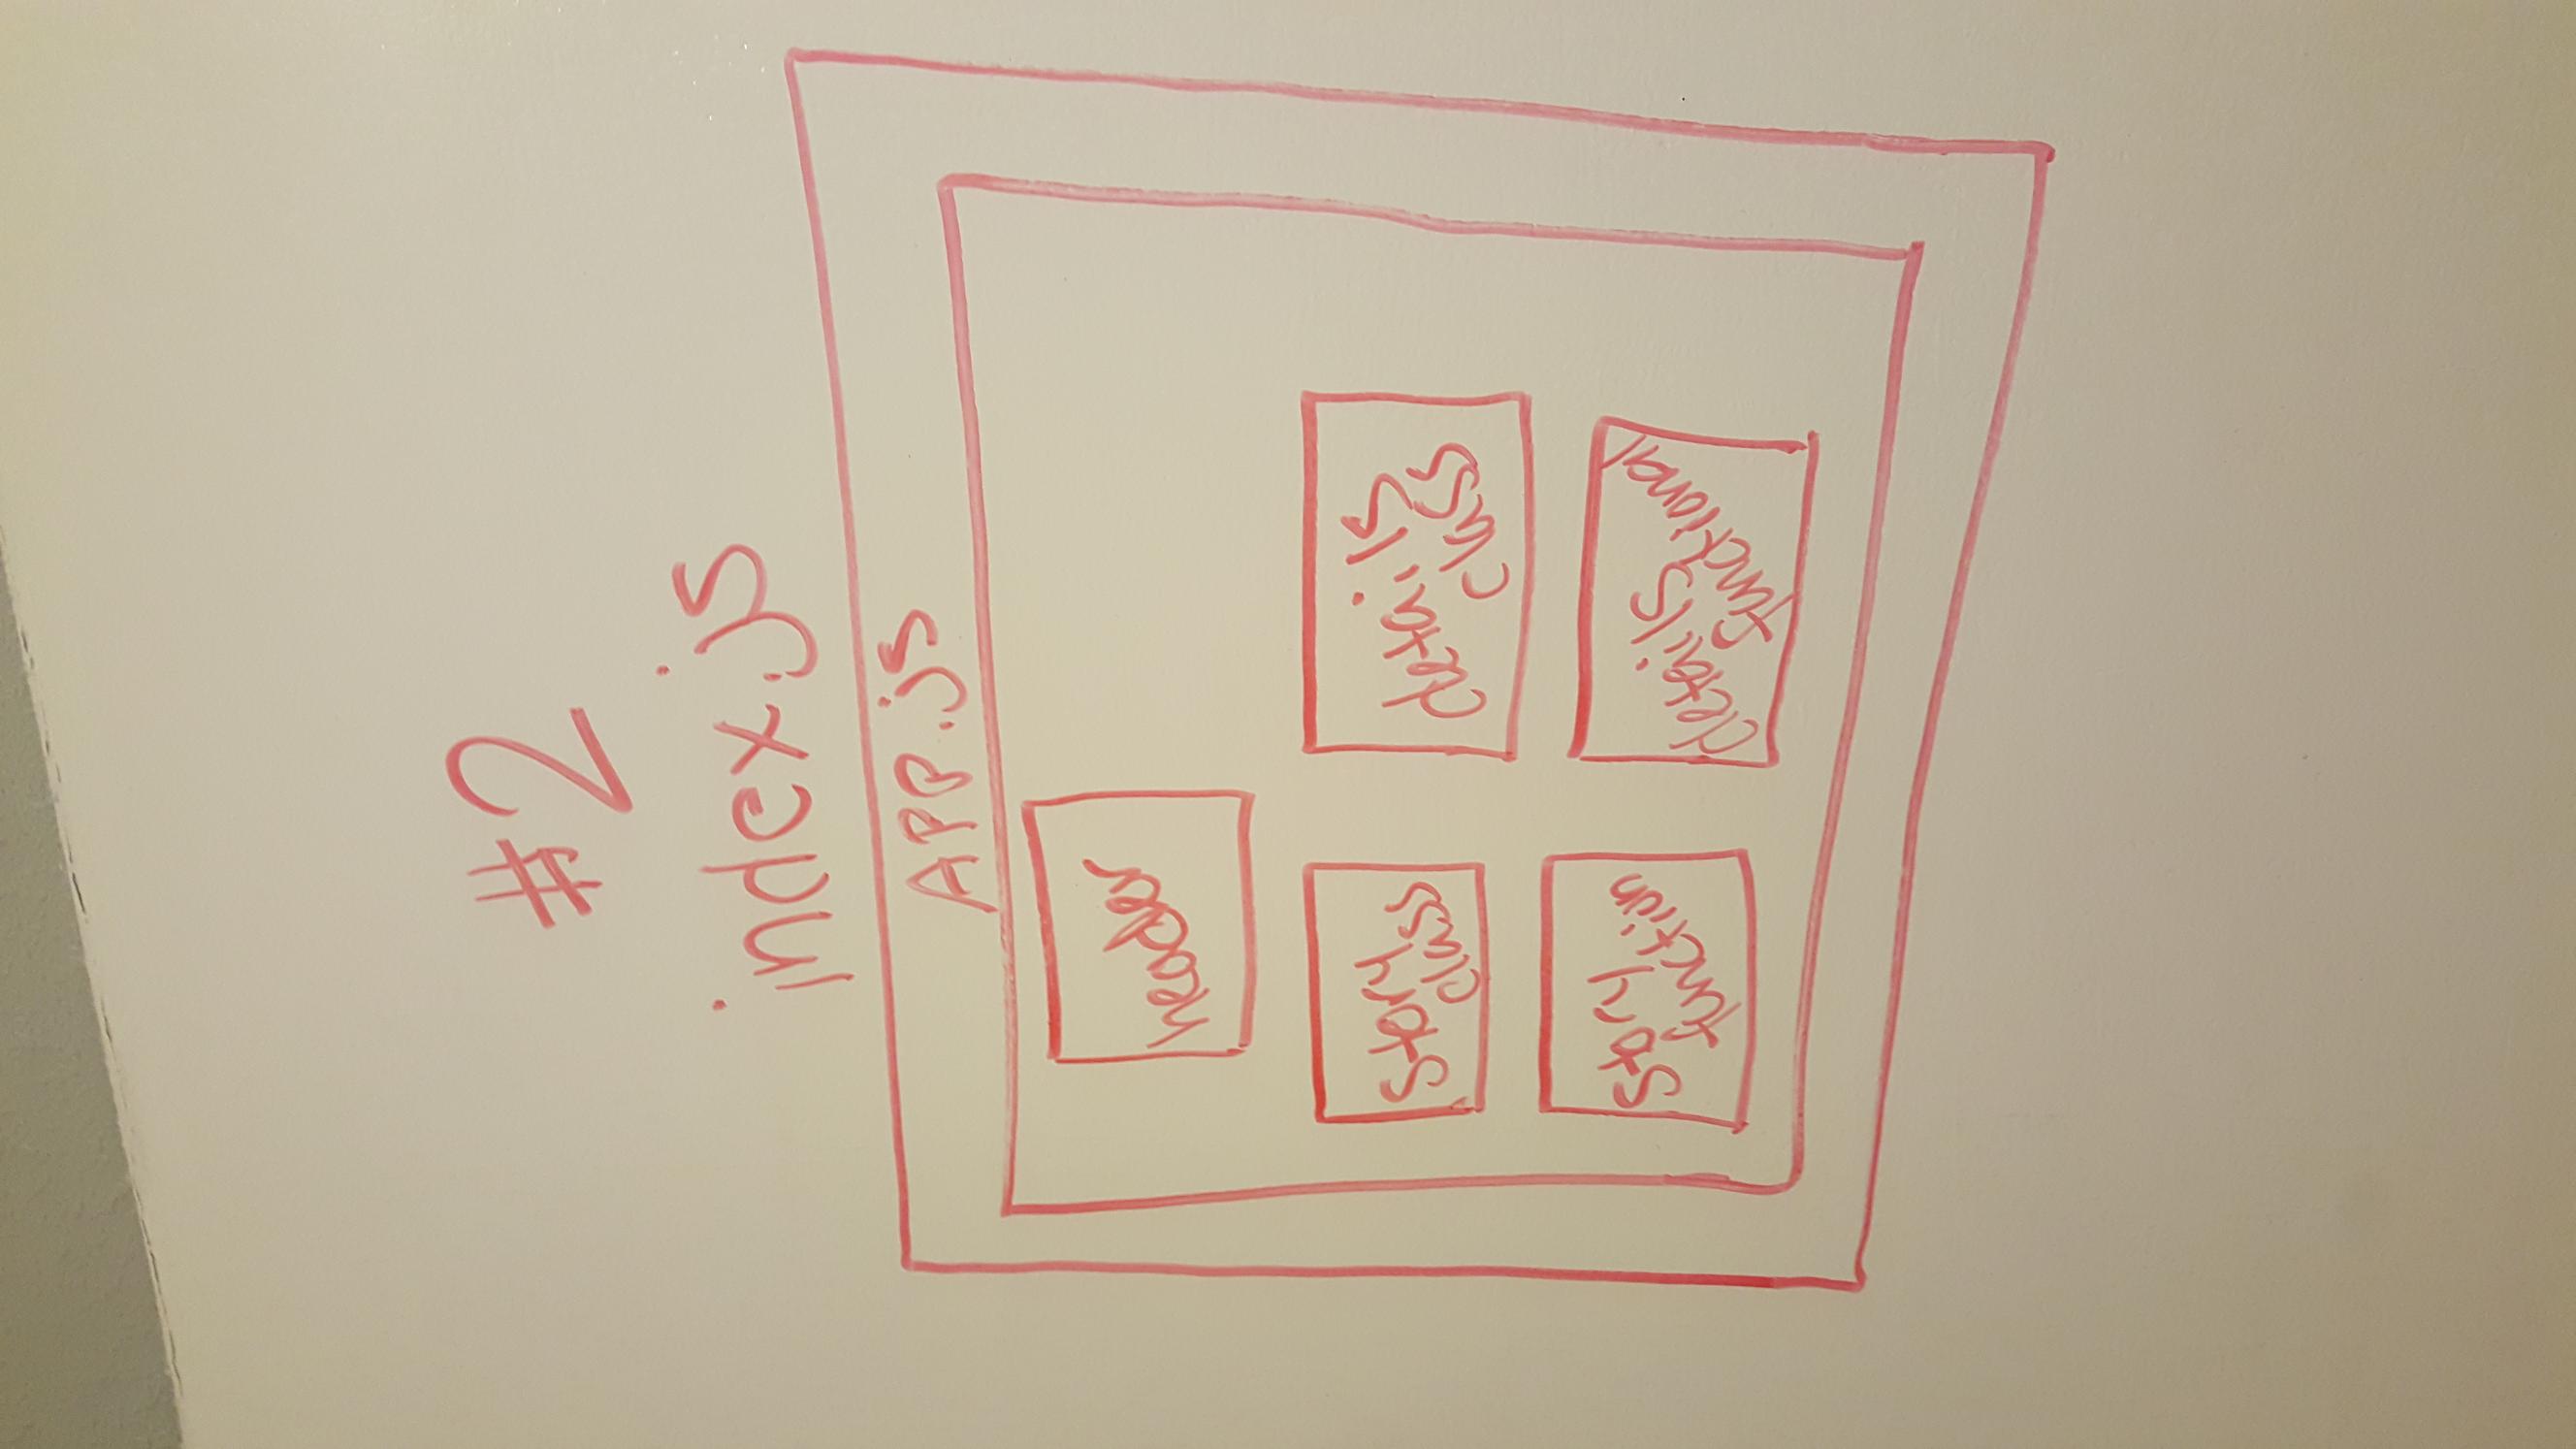 #2
index.js
APP.js
header
story
class
details
class
story
function
details
functional